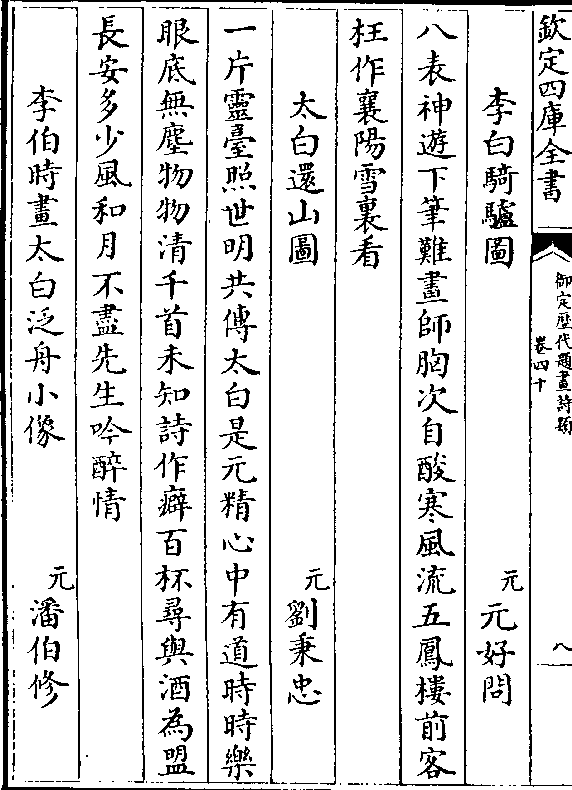 欽定四庫全書
御定歴代題畫詩類
卷四十
八
李白騎驢圖 元 元好問
八表神遊下筆難畫師胸次自酸寒風流五鳳樓前客
枉作襄陽雪裏看
太白還山圖 元 劉秉忠
一片靈臺照世明共傳太白是元精心中有道時時樂
眼底無塵物物清千首未知詩作癖百杯尋與酒為盟
長安多少風和月不盡先生吟醉情
李伯時畫太白泛舟小像 元 潘伯修